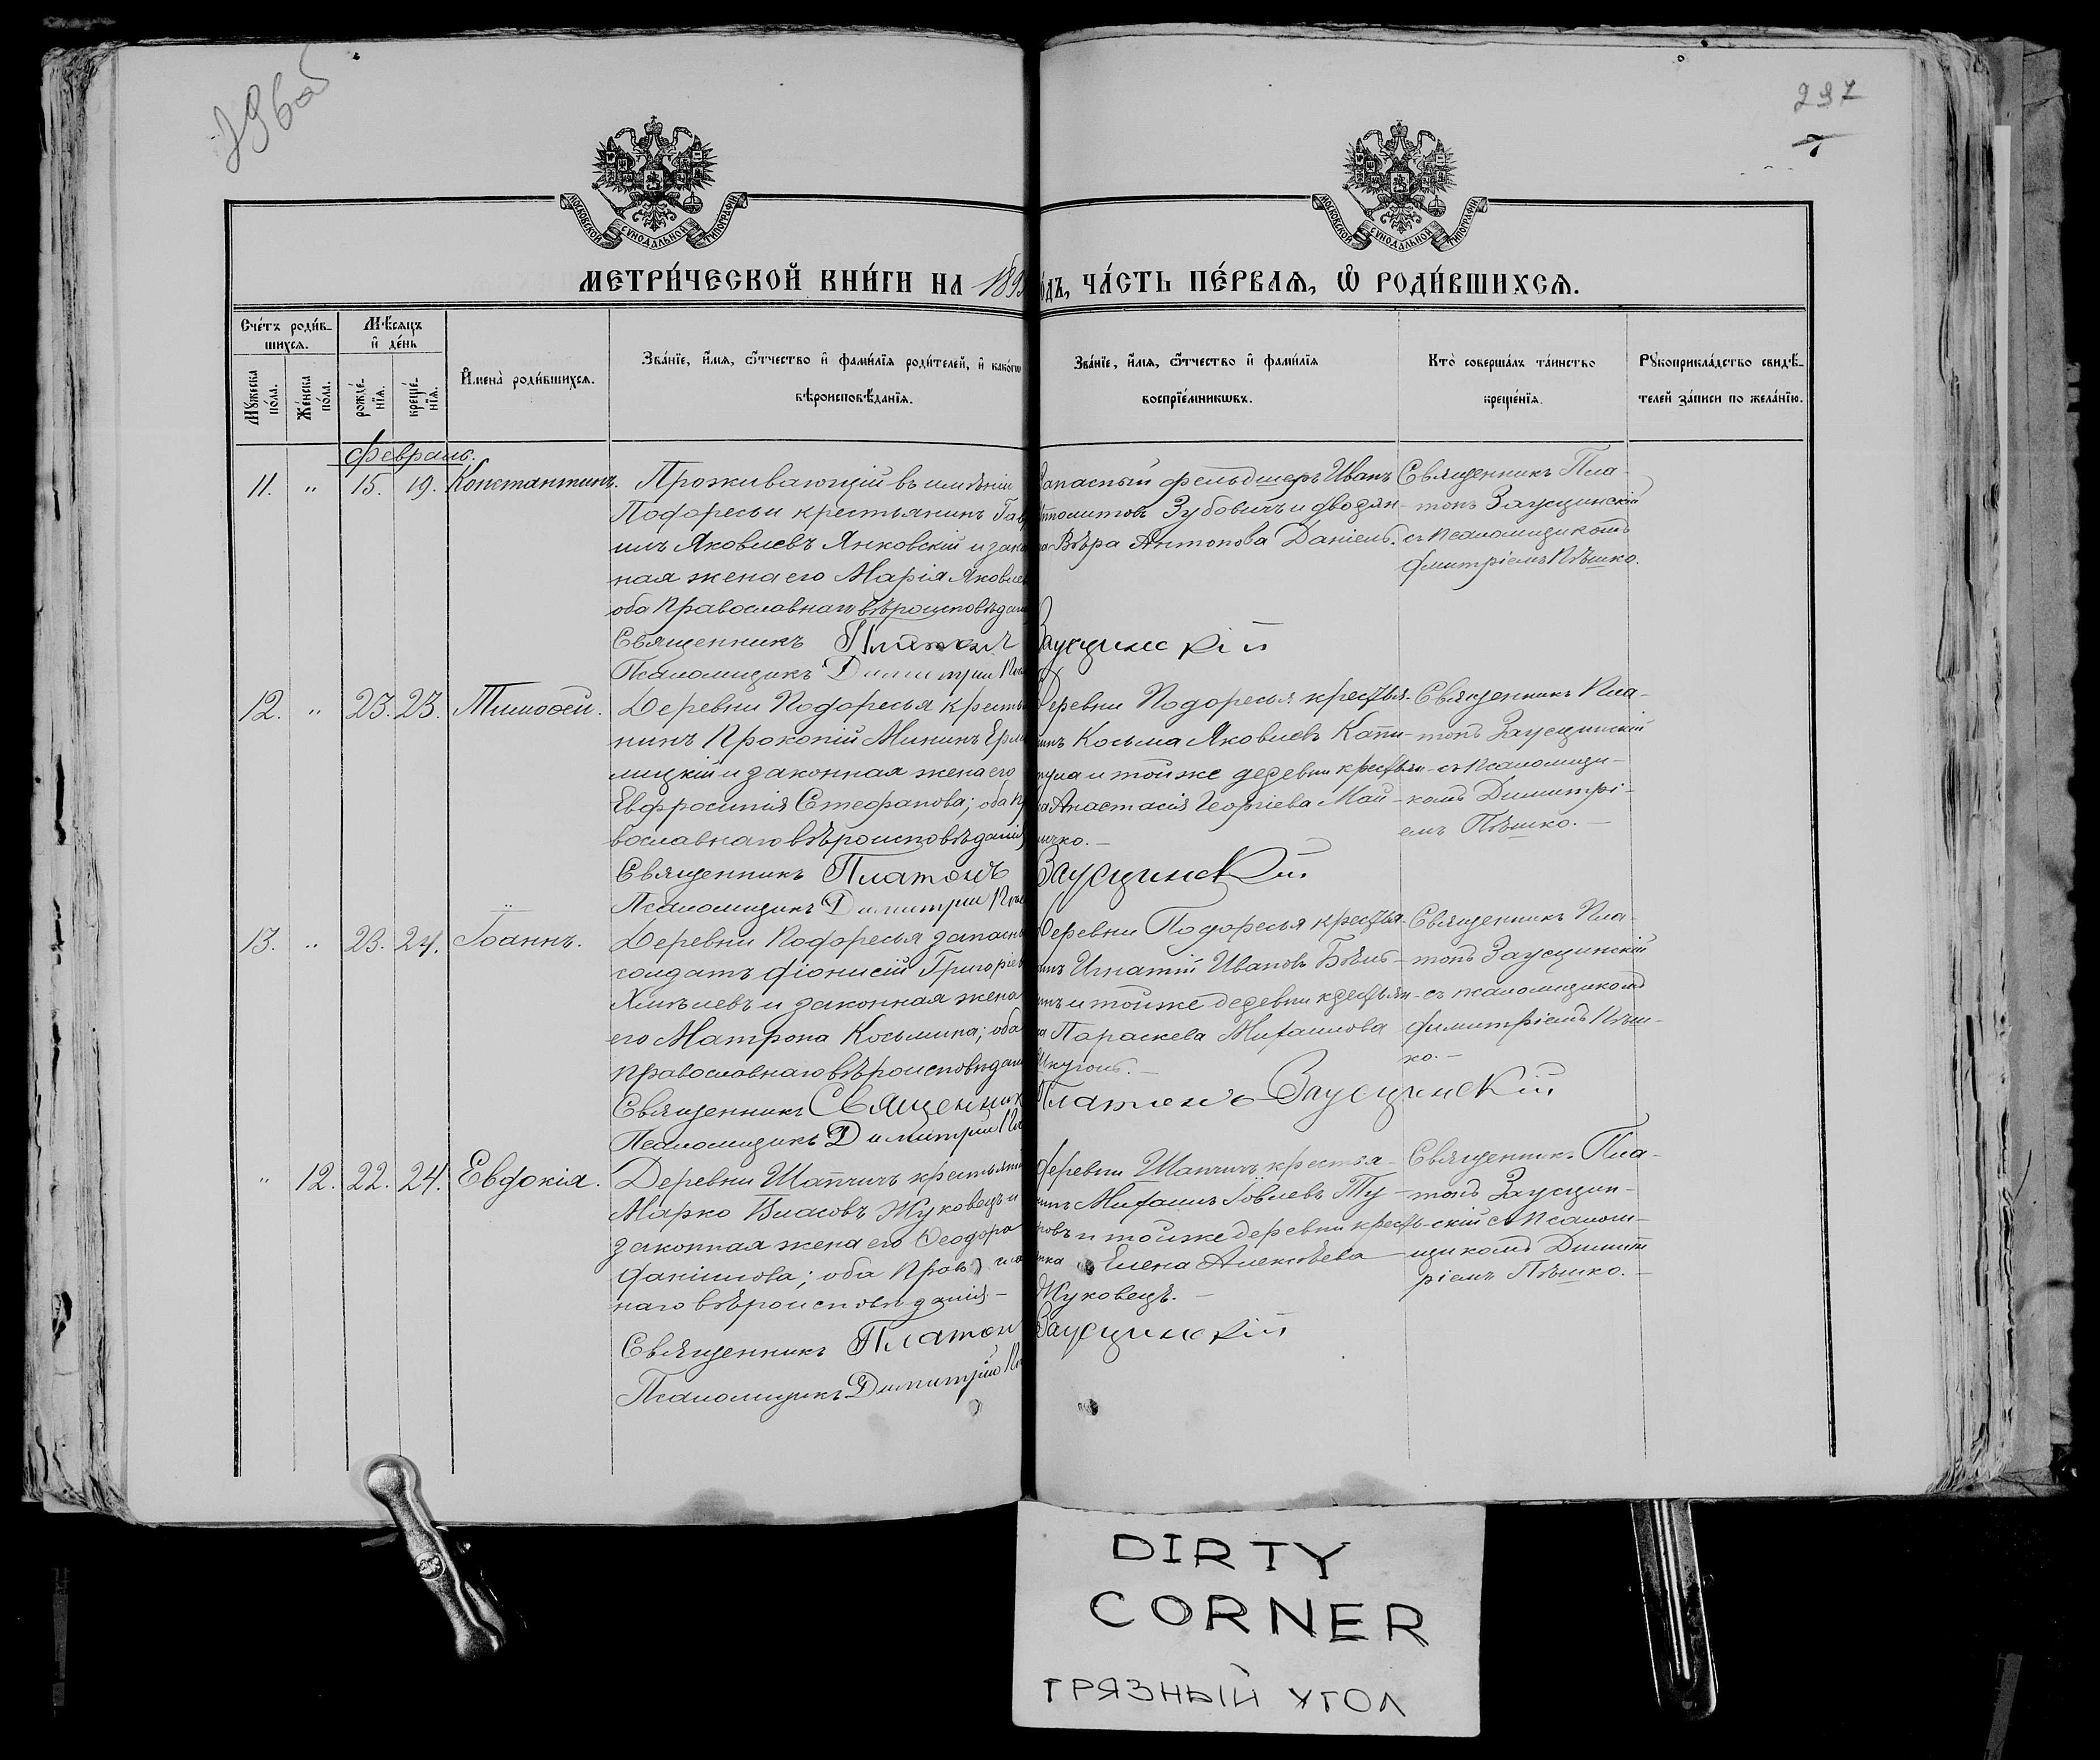 296об
297
7
МОСКОВСКОЙ СУНОДАЛЬНОЙ ТИПОГРАФІИ
МОСКОВСКОЙ СУНОДАЛЬНОЙ ТИПОГРАФІИ
МЕТРИ́ЧЕСКОЙ КНИ́ГИ НА 189
о́дъ, ЧА́СТЬ ПЕ́РВАЯ, Ѽ РОДИ́ВШИХСЯ.
Сче́тъ роди́в-
шихся.
Мѣсяцъ
и де́нь
Му́жеска
по́ла.
Же́нска
по́ла.
рожде́-
нїя.
креще́-
нїя.
Имена̀ роди́вшихся.
Зва́нїе, и́мя, о́тчество и фами́лїя роди́телей, и како́гѡ
вѣроисповѣ́данїя.
Зва́нїе, и́мя, о́тчество и фами́лїя
воспрїе́мникѡвъ.
Кто̀ соверша́лъ та́инство
креще́нїя.
Рукоприкла́дство свидѣ́-
телей за́писи по жела́нїю.
Февраль.
11. „ 15. 19. Константинъ.
Проживающій въ имѣніи
Подоресьи крестьянинъ Гав
илъ Яковлевъ Янковскій и зако
ная жена его Марія Яковле
оба православнаго вѣроисповѣдан
Священникъ Платонъ
Псаломщикъ Димитрій
апасный фельдшеръ Иванъ
Зубовичъ и дворян-
ка Вѣра Антонова Даніель.
Заусцинскій
Священникъ Пла-
тонъ Заусцинскій
съ псаломщикомъ
Димитріемъ Пѣшко.
12. „ 23. 23. Тимоѳей.
Деревни Подоресья кресть
нинъ Прокопій Мининъ Ерм
лицкій и законная жена его
Евфросинія Стефанова; оба пр
вославнаго вѣроисповѣданія
Священникъ Платонъ
Псаломщикъ Димитрій
Деревни Подоресья крестья-
нинъ Косьма Яковлевъ Капи-
тула и тойже деревни крестьян-
ка Анастасія Георгіева Май-
ичко. —
Заусцинскій
Священникъ Пла-
тонъ Заусцинскій
съ псаломщи-
комъ Димитрі-
емъ Пѣшко. —
13. „ 23. 24. Іоаннъ.
Деревни Подоресья запасн
солдатъ Діонисій Григорьев
Хмѣлевъ и законная жена
его Матрона Косьмина; оба
православнаго вѣроисповѣдан
Священникъ Священникъ
Псаломщикъ Димитрій
Деревни Подоресья крестья-
нинъ Игнатій Ивановъ
и тойже деревни крестьян-
ка Параскева Михаилова
Платонъ Заусцинскій
Священникъ Пла-
тонъ Заусцинскій
съ псаломщикомъ
Димитріемъ Пѣш-
ко. —
„ 12. 22. 24. Евдокія.
Деревни Шапчичъ крестьяни
Марко Власовъ Жуковецъ и
законная жена его Ѳеодора
Даніилова; оба правосла
наго вѣроисповѣданія —
Священникъ Платон
Псаломщикъ Димитрій
Деревни Шапчичъ крестья-
нинъ Михаилъ Іовлевъ Ту-
ровъ и тойже деревни кресть-
янка Елена Алексѣева
Жуковецъ. —
Заусцинскій
Священникъ Пла-
тонъ Заусцин-
скій съ псалом-
щикомъ Димит
ріемъ Пѣшко. —
DIRTY
CORNER
ГРЯЗНЫЙ УГОЛ